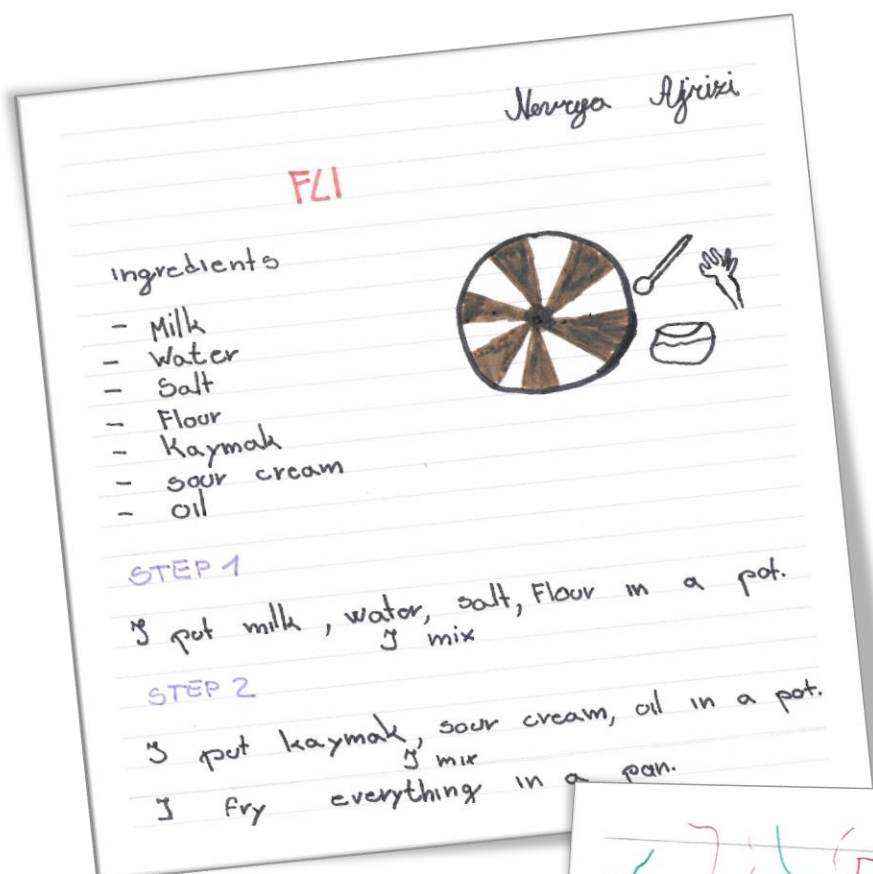 Ajrizi
FLI
ingredients
- Milk
- Water
- Salt
- Flour
- Kaymak
- sour cream
- oil
STEP 1
I put milk, water, salt, Flour in a pot.
I mix
STEP 2
I put kaymak, sour cream, oil in a pot.
I mix
I fry everything in a pan.